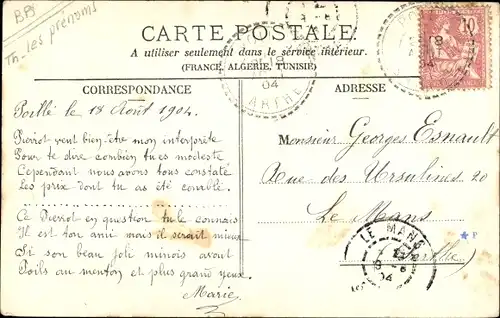 BB
Th-Les prénoms
CARTE POSTALE
A utiliser seulement dans le service intérieur.
(FRANCE, ALGERIE, TUNISIE)
10
04
SARTHE
CORRESPONDANCE
ADRESSE
Poillé le 18 Août 1904.
Pierrot veut bien être mon interprète
Pour te dire combien tu es modeste
Cependant nous avons tous constaté
Les prix dont tu as été comblé.
Ce Pierrot en question tu le connais
Il est ton ami mais il serait mieux
Si son beau joli minois avait
Poils au menton et plus grand yeux.
Marie
Monsieur Georges Esnault
Rue des Ursulines 20
Le Mans
(Sarthe)
LE MANS
04
P